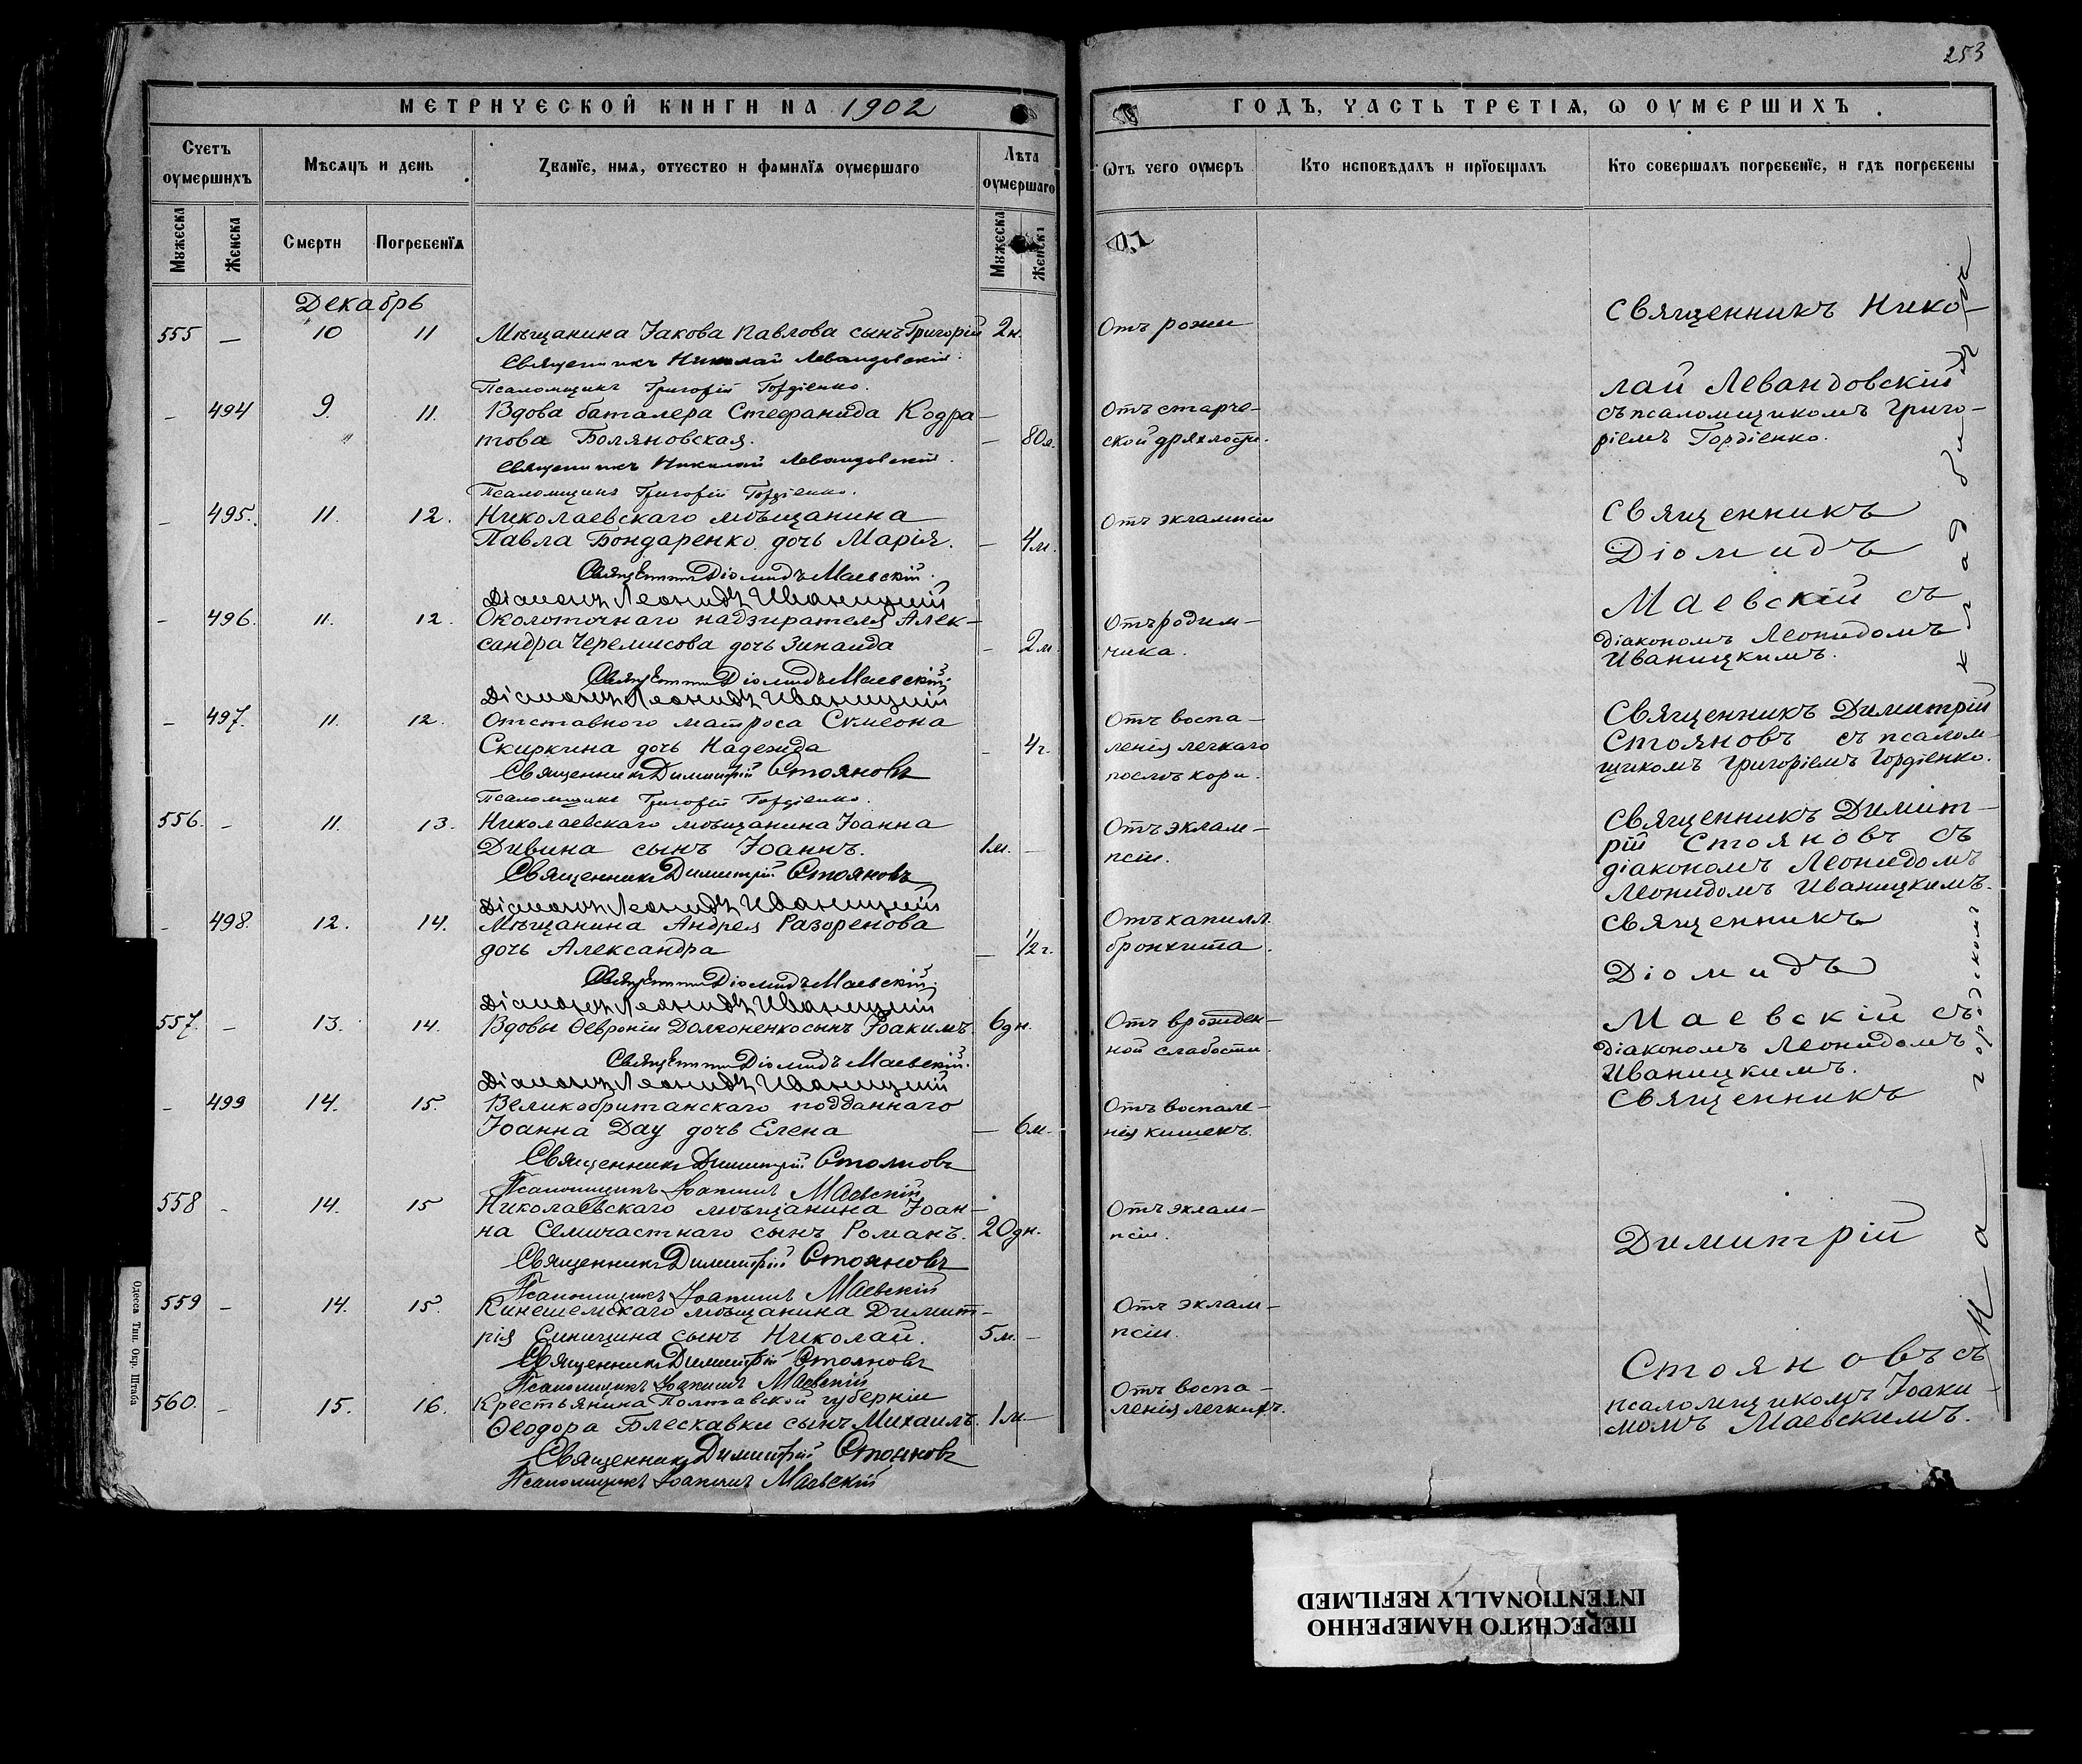 253
МЕТРИЧЕСКОЙ КНИГИ НА 1902
ГОДЪ, ЧАСТЬ ТРЕТІѦ, Ѡ ОУМЕРШИХЪ.
Счетъ оумершихъ
Мѣсяцъ и день
Званїе, имѧ, отчество и фамилїѧ оумершаго
Лѣта оумершаго
Мужеска
Женска
Смерти
Погребенїѧ
Мужеска
Женска
Ѿтъ чего оумеръ
Кто исповѣдалъ и прїобщалъ
Кто совершалъ погребенїе, и гдѣ погребены
Декабрь
555 – 10 11 Мѣщанина Іакова Павлова сынъ Григорій 2н. Отъ рожи
Священникъ Николай Левандовскій.
Псаломщикъ Григорій Гордіенко.
– 494 9. 11. Вдова баталера Стефанида Кодра– Отъ старче–
това Боляновская. – 80л. ской дряхлости.
Священникъ Николай Левандовскій.
Псаломщикъ Григорій Гордіенко.
Священникъ Нико–
лай Левандовскій
съ псаломщикомъ Григо–
ріемъ Гордіенко.
– 495. 11. 12. Николаевскаго мѣщанина Отъ эклампсіи
Павла Бондаренко дочь Марія. – 4м.
Священникъ Діомидъ Маевскій.
Діаконъ Леонидъ Иваницкій
– 496. 11. 12. Околоточнаго надзирателя Алек– Отъ родим–
сандра Черемисова дочь Зинаида – 2м. чика.
Священникъ Діомидъ Маевскій.
Діаконъ Леонидъ Иваницкій
Священникъ
Діомидъ
Маевскій съ
діакономъ Леонидомъ
Иваницкимъ.
– 497. 11. 12. Отставного матроса Сѵмеона Отъ воспа–
Скиркина дочь Надежда – 4г. ленія легкаго
Священникъ Димитрій Стояновъ послѣ кори.
Псаломщикъ Григорій Гордіенко.
Священникъ Димитрій
Стояновъ съ псалом–
щикомъ Григоріемъ Гордіенко.
556. – 11. 13. Николаевскаго мѣщанина Іоанна Отъ эклам–
Дивина сынъ Іоаннъ. 1м. – псіи.
Священникъ Димитрій Стояновъ
Діаконъ Леонидъ Иваницкій
Священникъ Димит–
рій Стояновъ съ
діакономъ Леонидомъ
Леонидомъ Иваницкимъ.
– 498. 12. 14. Мѣщанина Андрея Разоренова Отъ капилл.
дочь Александра – 1/2г. бронхита.
Священникъ Діомидъ Маевскій.
Діаконъ Леонидъ Иваницкій
557. – 13. 14. Вдовы Ѳевроніи Долгоненко сынъ Іоакимъ. 6дн. Отъ врожден–
ной слабости.
Священникъ Діомидъ Маевскій.
Діаконъ Леонидъ Иваницкій
Священникъ
Діомидъ
Маевскій съ
діакономъ Леонидомъ
Иваницкимъ.
– 499 14. 15. Великобританскаго подданнаго Отъ воспале–
Іоанна Дау дочь Елена – 6м. нія кишекъ.
Священникъ Димитрій Стояновъ
Псаломщикъ Іоакимъ Маевскій
558 – 14. 15 Николаевскаго мѣщанина Іоан– Отъ эклам–
на Семичастнаго сынъ Романъ. 20дн. псіи.
Священникъ Димитрій Стояновъ
Псаломщикъ Іоакимъ Маевскій
559 – 14. 15. Кинешемскаго мѣщанина Димит– Отъ эклам–
рія Синицина сынъ Николай. 5м. – псіи.
Священникъ Димитрій Стояновъ
Псаломщикъ Іоакимъ Маевскій
560. – 15. 16. Крестьянина Полтавской губерніи Отъ воспа–
Ѳеодора Блескавки сынъ Михаилъ. 1м. – ленія легкихъ.
Священникъ Димитрій Стояновъ
Псаломщикъ Іоакимъ Маевскій
Священникъ
Димитрій
Стояновъ съ
псаломщикомъ Іоаки–
момъ Маевскимъ.
На городскомъ кладбищѣ
Одесса Тип. Окр. Штаба
ПЕРЕСНЯТО НАМЕРЕННО
INTENTIONALLY REFILMED